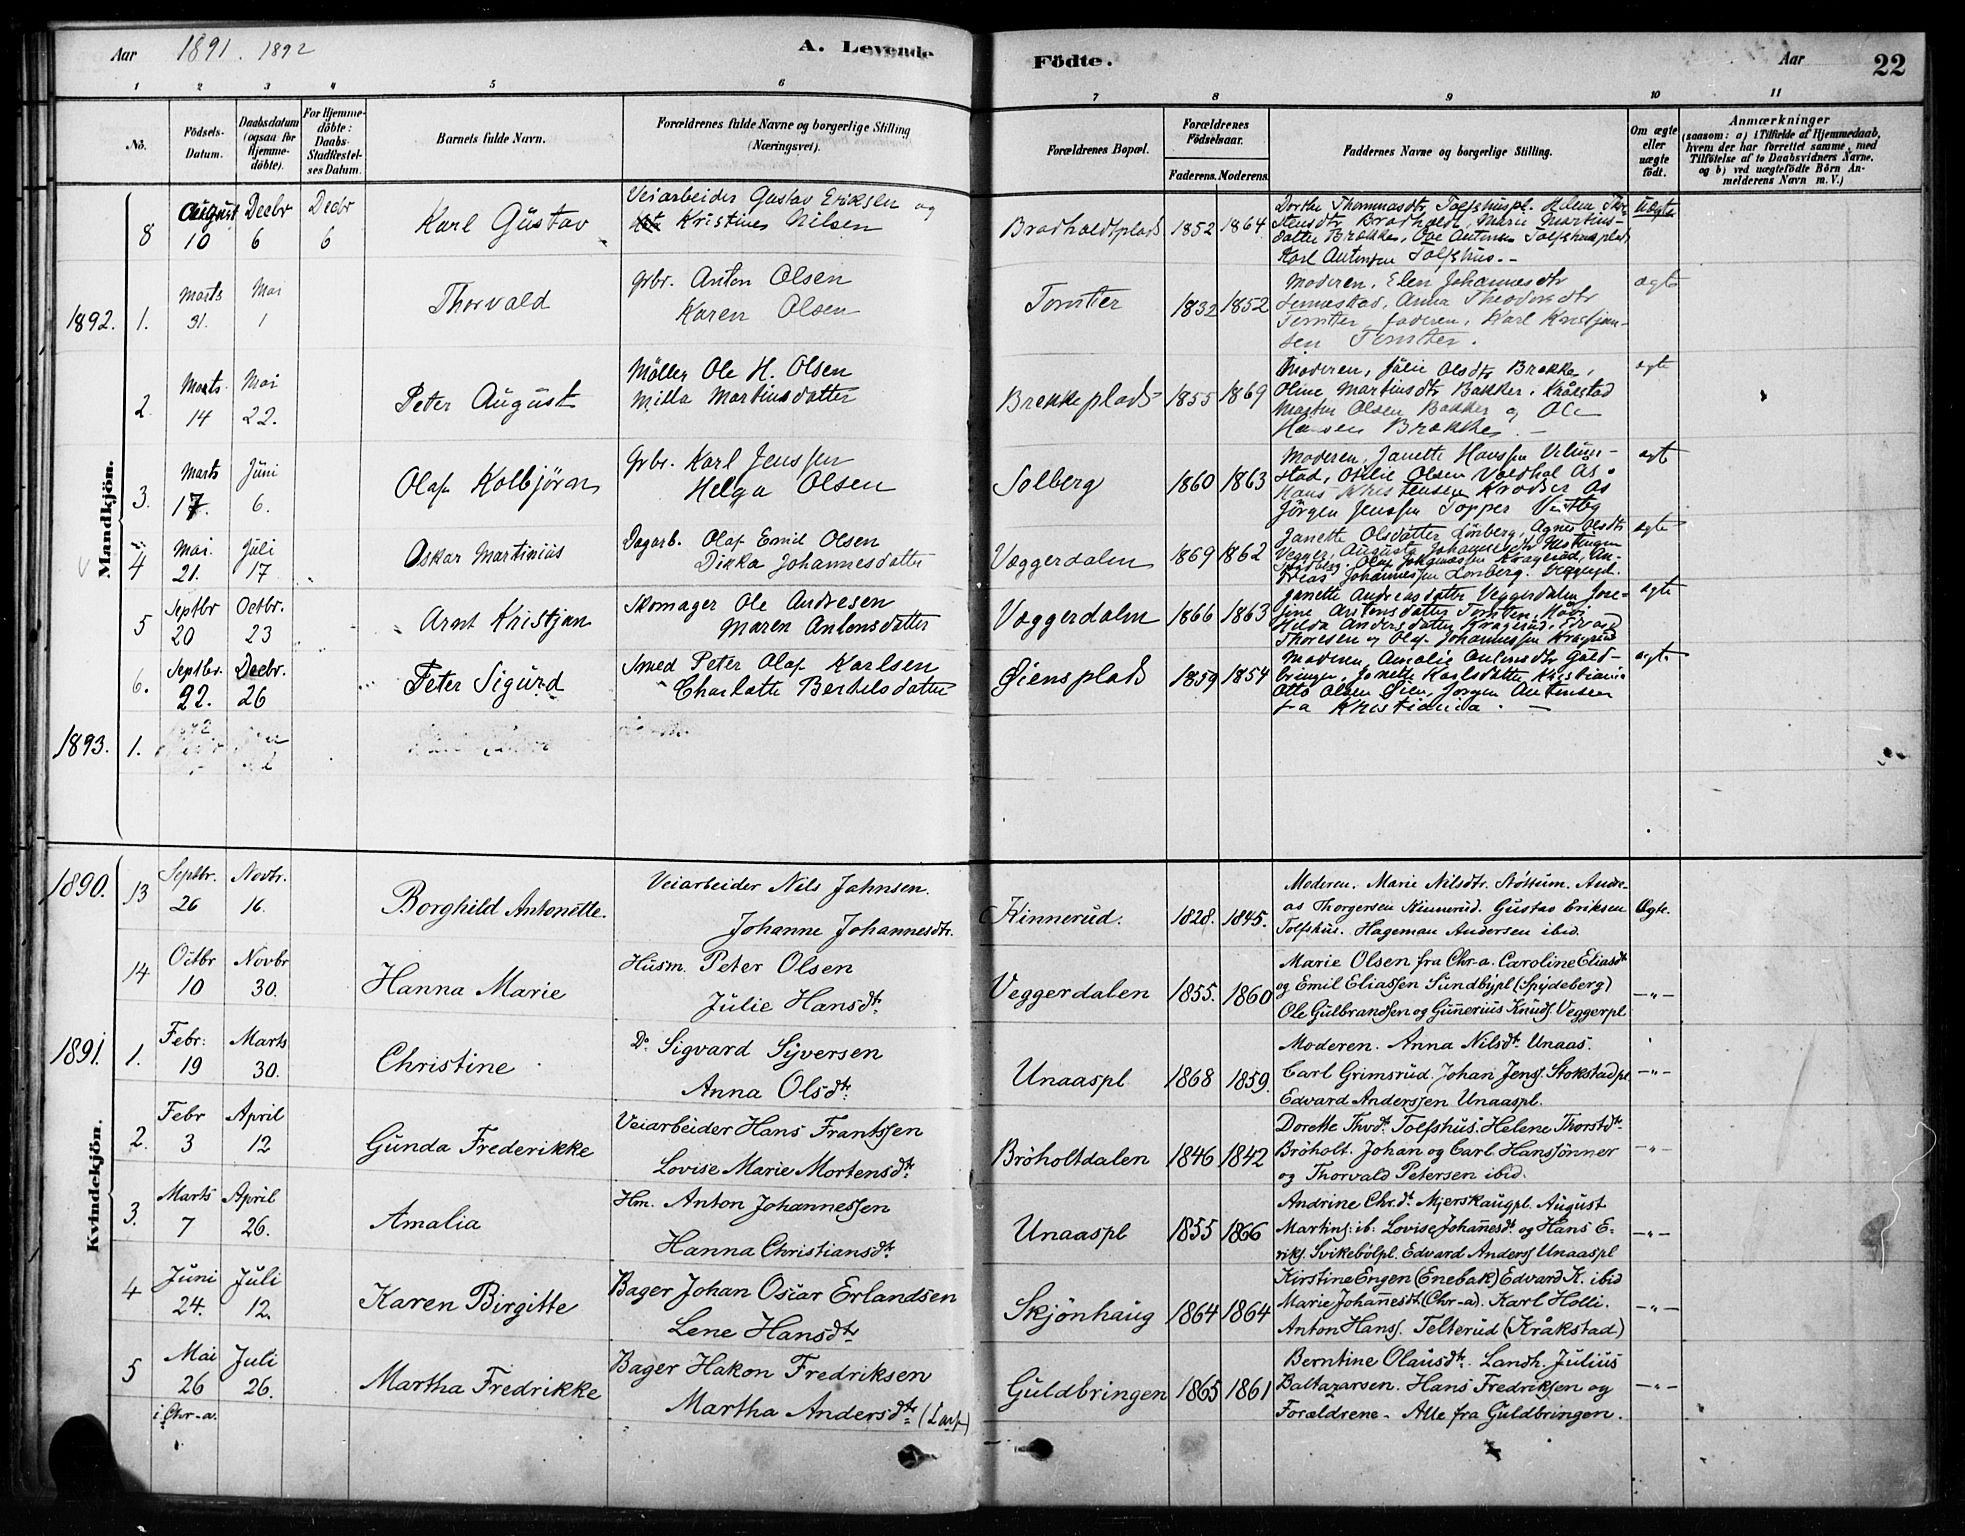 Aar 1891. 1892 A. Levende Födte. Aar 22
1 2 3 4 5 6 7 8 9 10 11
No. Födsels-Datum. Daabsdatum (ogsaa for Hjemmedöbte). For Hjemmedöbte: Daabs-Stadfæstelses Datum. Barnets fulde Navn. Forældrenes fulde Navne og borgerlige Stilling (Næringsvei). Forældrenes Bopæl. Forældrenes Födselsaar. Faderens. Moderens. Faddernes Navne og borgerlige Stilling. Om ægte eller uægte födt. Anmærkninger (saasom: a) i Tilfælde af Hjemmedaab, hvem der har forrettet samme, med Tilföielse af to Daabsvidners Navne, og b) ved uægtefödte Börn Anmelderens Navn m. V.)
Mandkjön.
8 August 10 Decbr 6 Decbr 6 Karl Gustav
Veiarbeider Gustav Eriksen og
Kristine Nilsen
Bradholdtplads 1852 1864
Dorthe Thommasdtr Tolfshuspl. Helen Thor-
stensdtr Bradholdt, Marie Martins-
datter Brække, Ove Antonsen Tolfshusplads
Karl Antonsen Tolfshus.-
Uægte
1892. 1. Marts 31. Mai 1 Thorvald
Grbr. Anton Olsen
Karen Olsen
Tomter 1832 1852
Moderen, Elen Johannesdtr
Anna Theodorsdtr
Tomter, faderen, Karl Kristjan-
sen Tomter.
ægte
2. Marts 14 Mai 22. Peter August
Möller Ole H. Olsen
Milla Martinsdatter
Brækkeplads 1855 1869
Moderen, Julie Olsdtr Brække,
Oline Martinsdtr Bakker, Kråkstad
Martin Olsen Bakker og Ole
Hansen Brække. -
ægte
3. Marts 17. Juni 6. Olaf Kolbjörn
Grbr. Karl Jenssen
Helga Olsen
Solberg 1860 1863
Moderen, Janette Hanssen
stad, Otilie Olsen Voldhol Ås.
Hans Kristensen Kroder Ås
Jörgen Jenssen Topper Vestby
ægte
4 Mai. 21. Juli 17 Oskar Martinius
Dagarb. Olaf Emil Olsen
Dikka Johannesdatter
Væggerdalen 1869 1862
Janette Olsdatter Lönberg, Agnes Olsdtr
Vegger, Augusta Johannesdtr
Olaf Johannessen Kragerud, An-
dreas Johannessen Lönberg.
ægte
5 Septbr 20 Octbr. 23 Arnt Kristjan
Skomager Ole Andresen
Maren Antonsdatter
Væggerdalen 1866 1863
Janette Andreasdatter Veggerdalen, Jose-
fine Arstensdatter Tomter,
Hilda Andersdatter Kragerud, Edvard
Thoresen og Olaf Johannessen Kragerud
ægte
6. Septbr. 22. Decbr. 26 Peter Sigurd
Smed Peter Olaf Karlsen
Charlotte Bertelsdatter
Øiensplads 1859 1854
Moderen, Amalie Antonsdtr Guld-
bringen, Janette Karlsdatter Kristiania
Otto Olsen Øien, Jørgen Antonsen
fra Kristiania. -
ægte
1893. 1.
Kvindekjön.
1890. 13 Septbr. 26 Novbr. 16. Borghild Antonette.
Veiarbeider Nils Johnsen.
Johanne Johannesdtr.
Kinnerud. 1828. 1845.
Moderen. Marie Nilsdtr. Støttum. Andre-
as Thorgersen Kinnerud. Gustav Eriksen
Tolfshus. Hageman Andersen ibid.
Ægte.
14 Octbr 10 Novbr 30. Hanna Marie
Husm. Peter Olsen
Julie Hansdtr.
Veggerdalen 1855. 1860
Marie Olsen fra Chr-a. Caroline Eliasdtr
og Emil Eliassen Sundbypl (Spydeberg)
Ole Gulbrandsen og Gunerius Knuds. Veggerpl
-"-
1891. 1. Febr: 19 Marts 30. Christine
Do Sigvard Syversen
Anna Olsdtr.
Unaaspl 1868 1859.
Moderen. Anna Nilsdtr. Unaas.
Carl Grimsrud. Johan Jens. Stokstadpl
Edvard Anderssen Unaaspl.
-"-
2. Febr 3 April 12 Gunda Frederikke
Veiarbeider Hans Frantssen
Lovise Marie Mortensdtr
Bröholtdalen 1846 1842
Dorette Thvdtr. Tolfshus. Helene Thorstdtr.
Bröholt. Johan og Carl Hanssönner
og Thorvald Petersen ibid.
-"-
3. Marts 7 April 26. Amalia
Hm. Anton Johannessen
Hanna Christiansdtr.
Unaaspl 1855 1866
Andrine Chr.dtr. Mjerskaugpl. August
Martins: ib: Lovise Johanesdtr og Hans E-
riks. Svikebölpl. Edvard Anders. Unaaspl
-"-
4 Juni 24. Juli 12. Karen Birgitte
Bager Johan Oscar Erlandsen
Lene Hansdtr
Skjönhaug 1864 1864
Kirstine Engen (Enebak) Edvard K. ibid
Marie Johanesdtr. (Chr-a). Karl Holli.
Anton Hans. Telterud (Kråkstad)
-"-
5 Mai 26 i Chr-a. Juli 26. Martha Fredrikke
Bager Hakon Fredriksen
Martha Andersdtr.
Guldbringen 1865 1861
Berntine Olausdtr. Landh. Julius
Baltazarsen. Hans Fredriksen og
Forældrene - Alle fra Guldbringen.
-"-